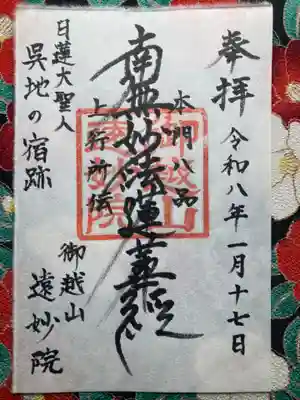 奉拝
令和八年一月十七日
本門八品
上行所伝
南無妙法蓮華経
日蓮大聖人
呉地の宿跡
御越山
遠妙院